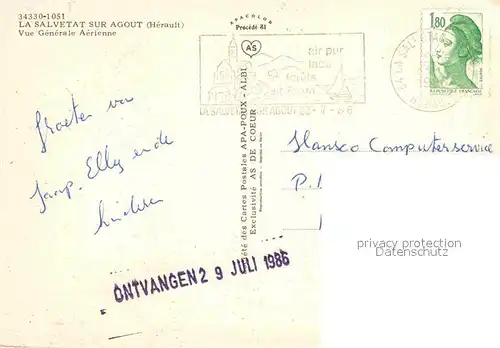 34330-1051
LA SALVETAT SUR AGOUT (Hérault)
Vue Générale Aérienne
APACOLOR
Procédé 81
AS
air pur
lacs
forêts
LA SALVETAT SUR AGOUT
1,80
RÉPUBLIQUE FRANÇAISE
été des Cartes Postales APA-POUX - ALBI
Exclusivité AS DE COEUR
Groeten van
Jaap, Elly en de
kinderen
Hansco Computerservice
P.
privacy protection
Datenschutz
ONTVANGEN 2 9 JULI 1986